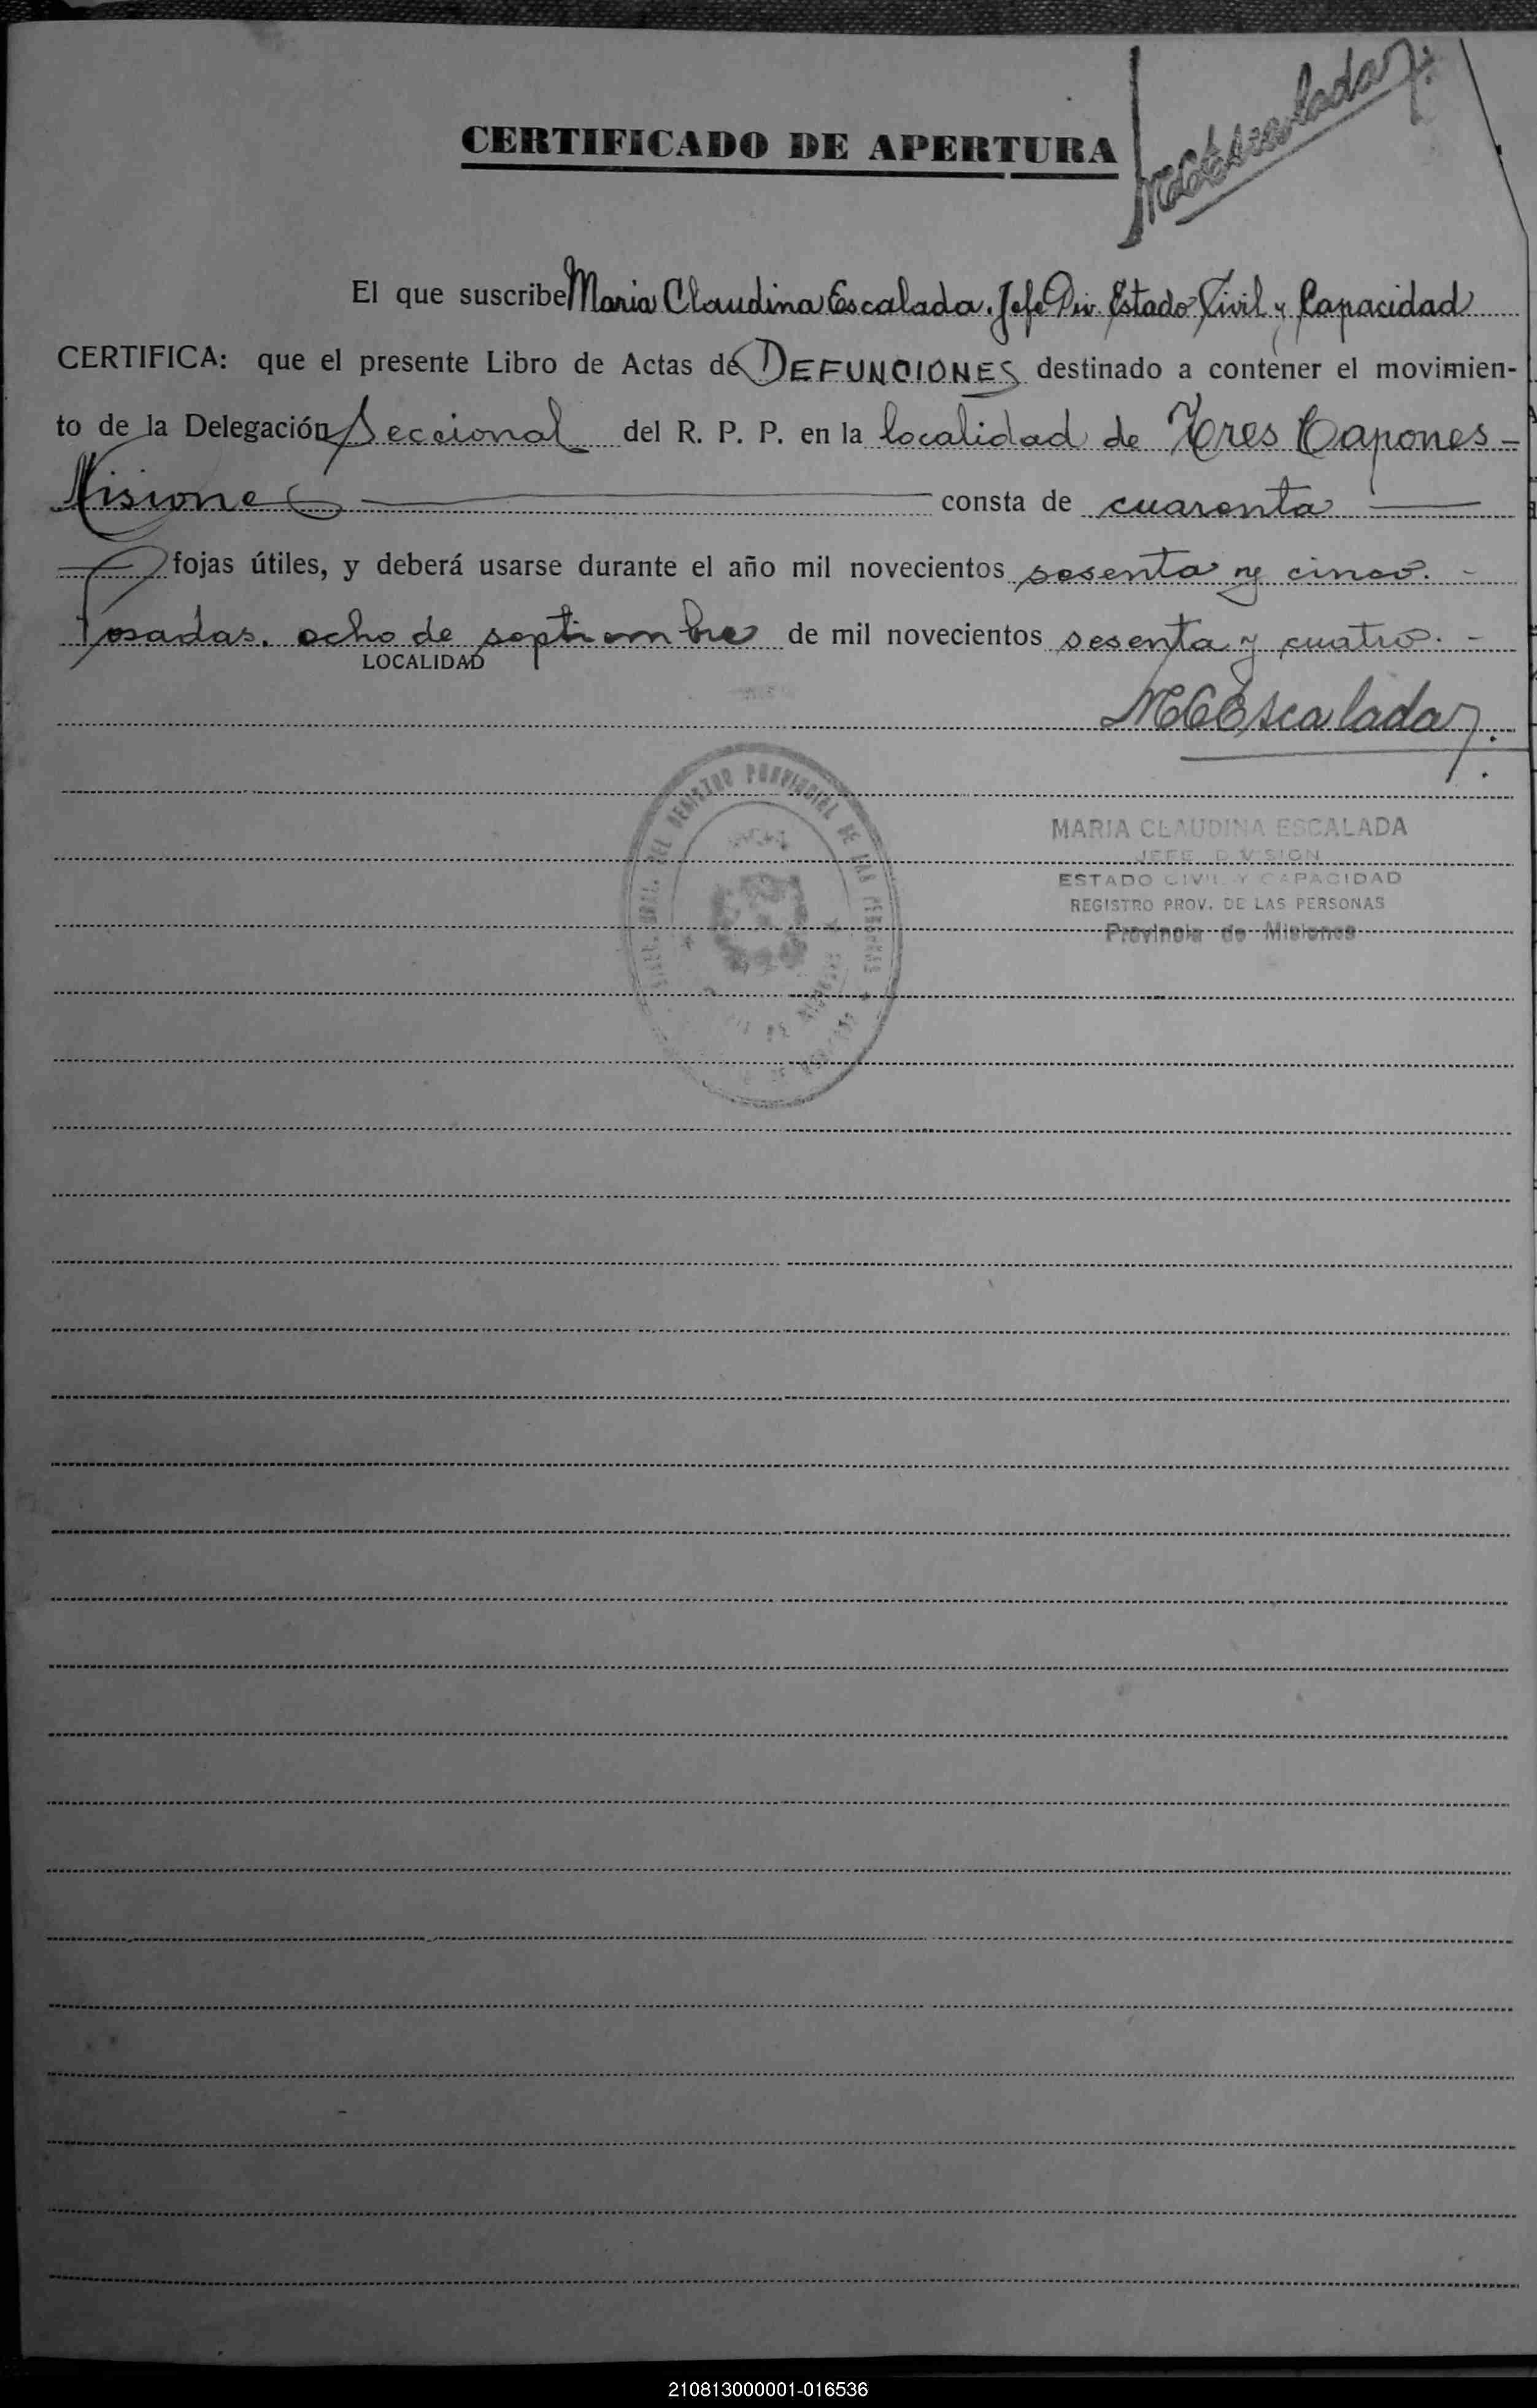 MCEscalada
CERTIFICADO DE APERTURA
El que suscribe Maria Claudina Escalada. Jefe Div. Estado Civil y Capacidad
CERTIFICA: que el presente Libro de Actas de DEFUNCIONES destinado a contener el movimien-
to de la Delegación Seccional del R. P. P. en la localidad de Tres Capones -
Misiones consta de cuarenta
fojas útiles, y deberá usarse durante el año mil novecientos sesenta y cinco. -
Posadas, ocho de septiembre de mil novecientos sesenta y cuatro. -
LOCALIDAD
MCEscalada
DEL REGISTRO PROVINCIAL DE LAS PERSONAS
MARIA CLAUDINA ESCALADA
JEFE DIVISION
ESTADO CIVIL Y CAPACIDAD
REGISTRO PROV. DE LAS PERSONAS
Provincia de Misiones
210813000001-016536